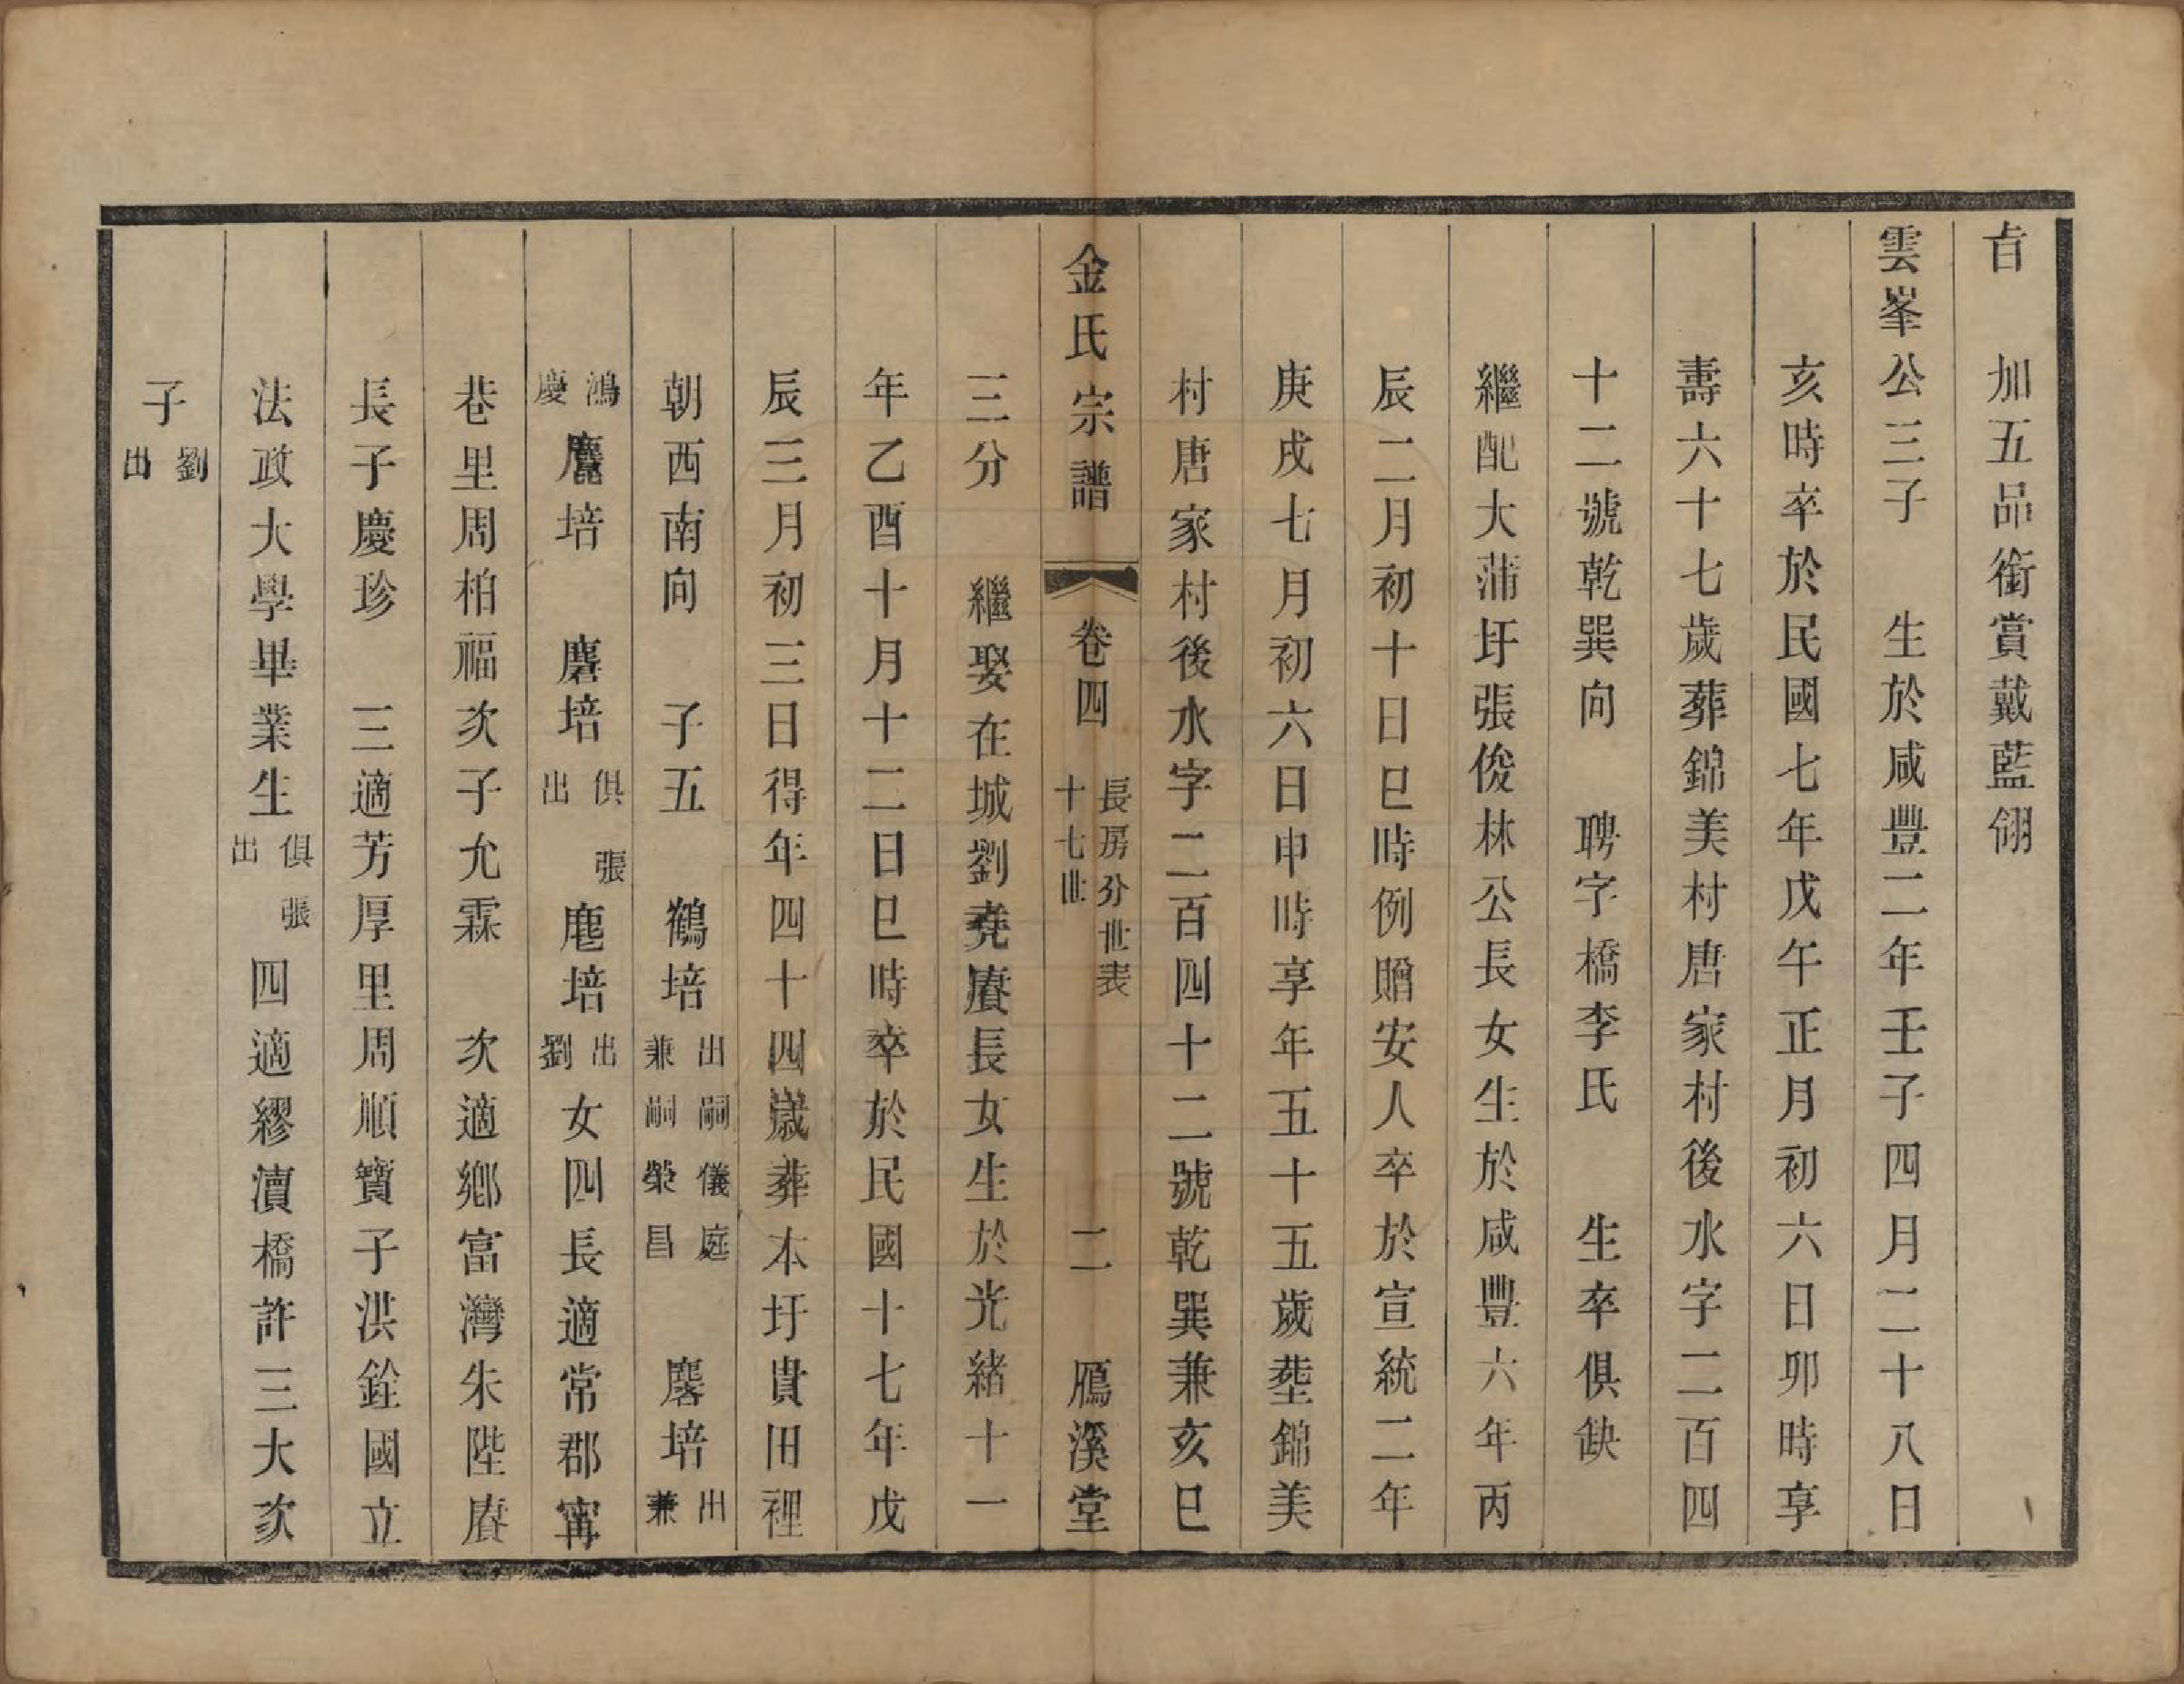 㫖　加五品銜賞戴藍翎
雲峯公三子　生於咸豐二年壬子四月二十八日
亥時卒於民國七年戊午正月初六日卯時享
壽六十七歲葬錦美村唐家村後水字二百四
十二號乾巽向　聘字橋李氏　生卒俱缺
繼配大蒲圩張俊林公長女生於咸豐六年丙
辰二月初十日巳時例贈安人卒於宣統二年
庚戌七月初六日申時享年五十五歲塟錦美
村唐家村後水字二百四十二號乾巽兼亥巳
金氏宗譜　卷四　長房分世表　十七世　二　鴈溪堂
三分　繼娶在城劉堯賡長女生於光緒十一
年乙酉十月十二日巳時卒於民國十七年戊
辰三月初三日得年四十四歲葬本圩貴田裡
朝西南向　子五　鶴培　出嗣儀庭兼嗣榮昌　麐培　出兼
鴻慶　麍培　麔培　俱張出　麀培　劉出　女四長適常郡甯
巷里周柏福次子允霖　次適鄉富灣朱陛賡
長子慶珍　三適芳厚里周順寶子洪銓國立
法政大學畢業生　俱張出　四適繆瀆橋許三大次
子　劉出